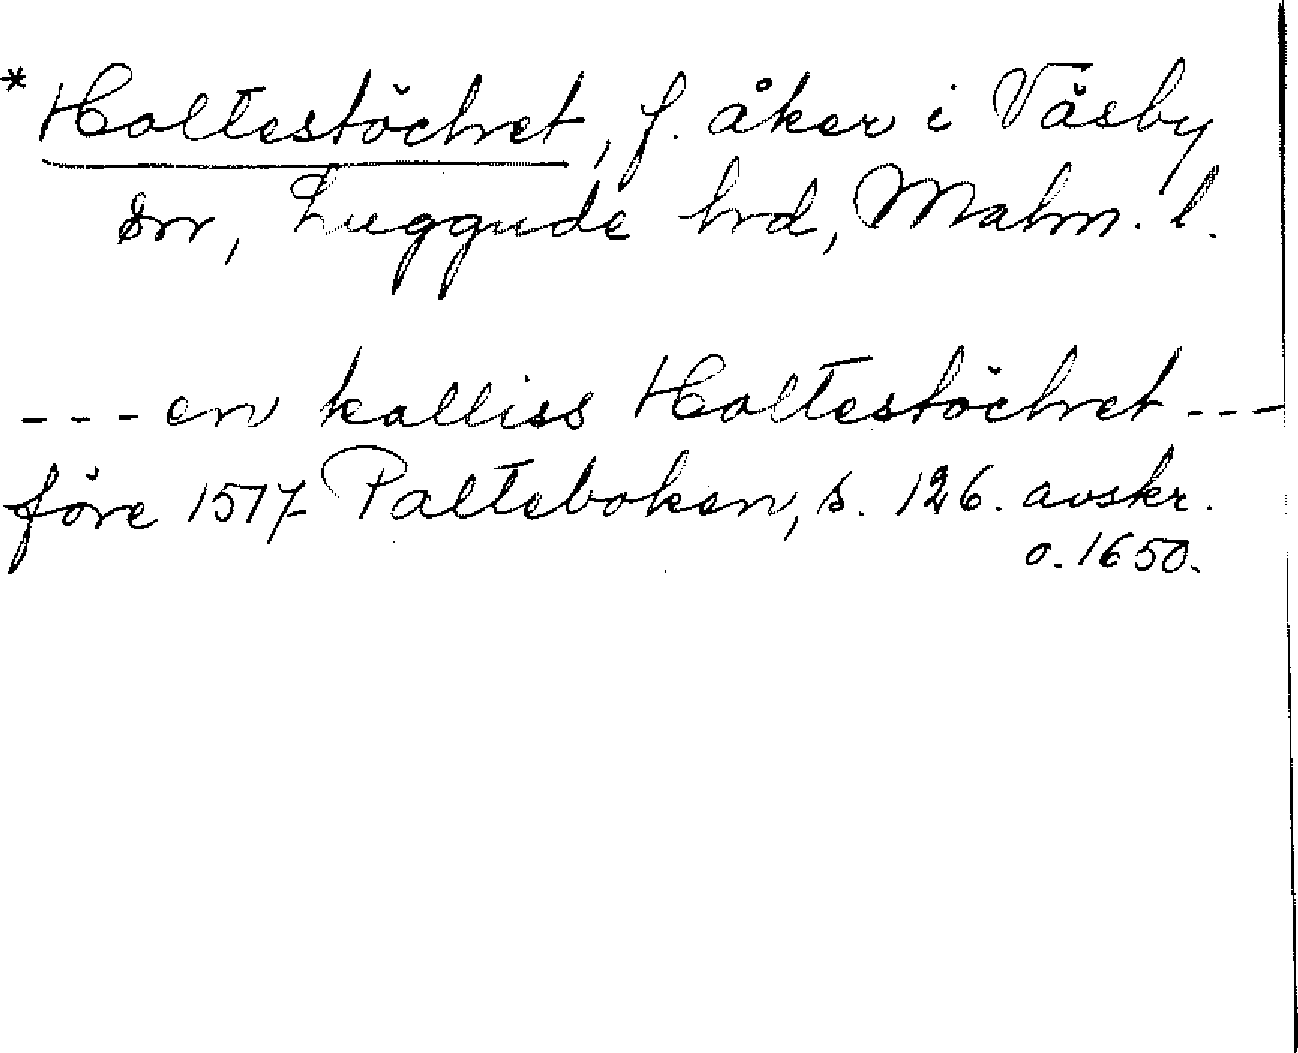 * Holtestöchret, f. åker i Väsby
sn, Luggude hrd, Malm. l.
--- en kalliss Holtestöchret ---
före 1517 Palteboken, s. 126. avskr.
o. 1650.